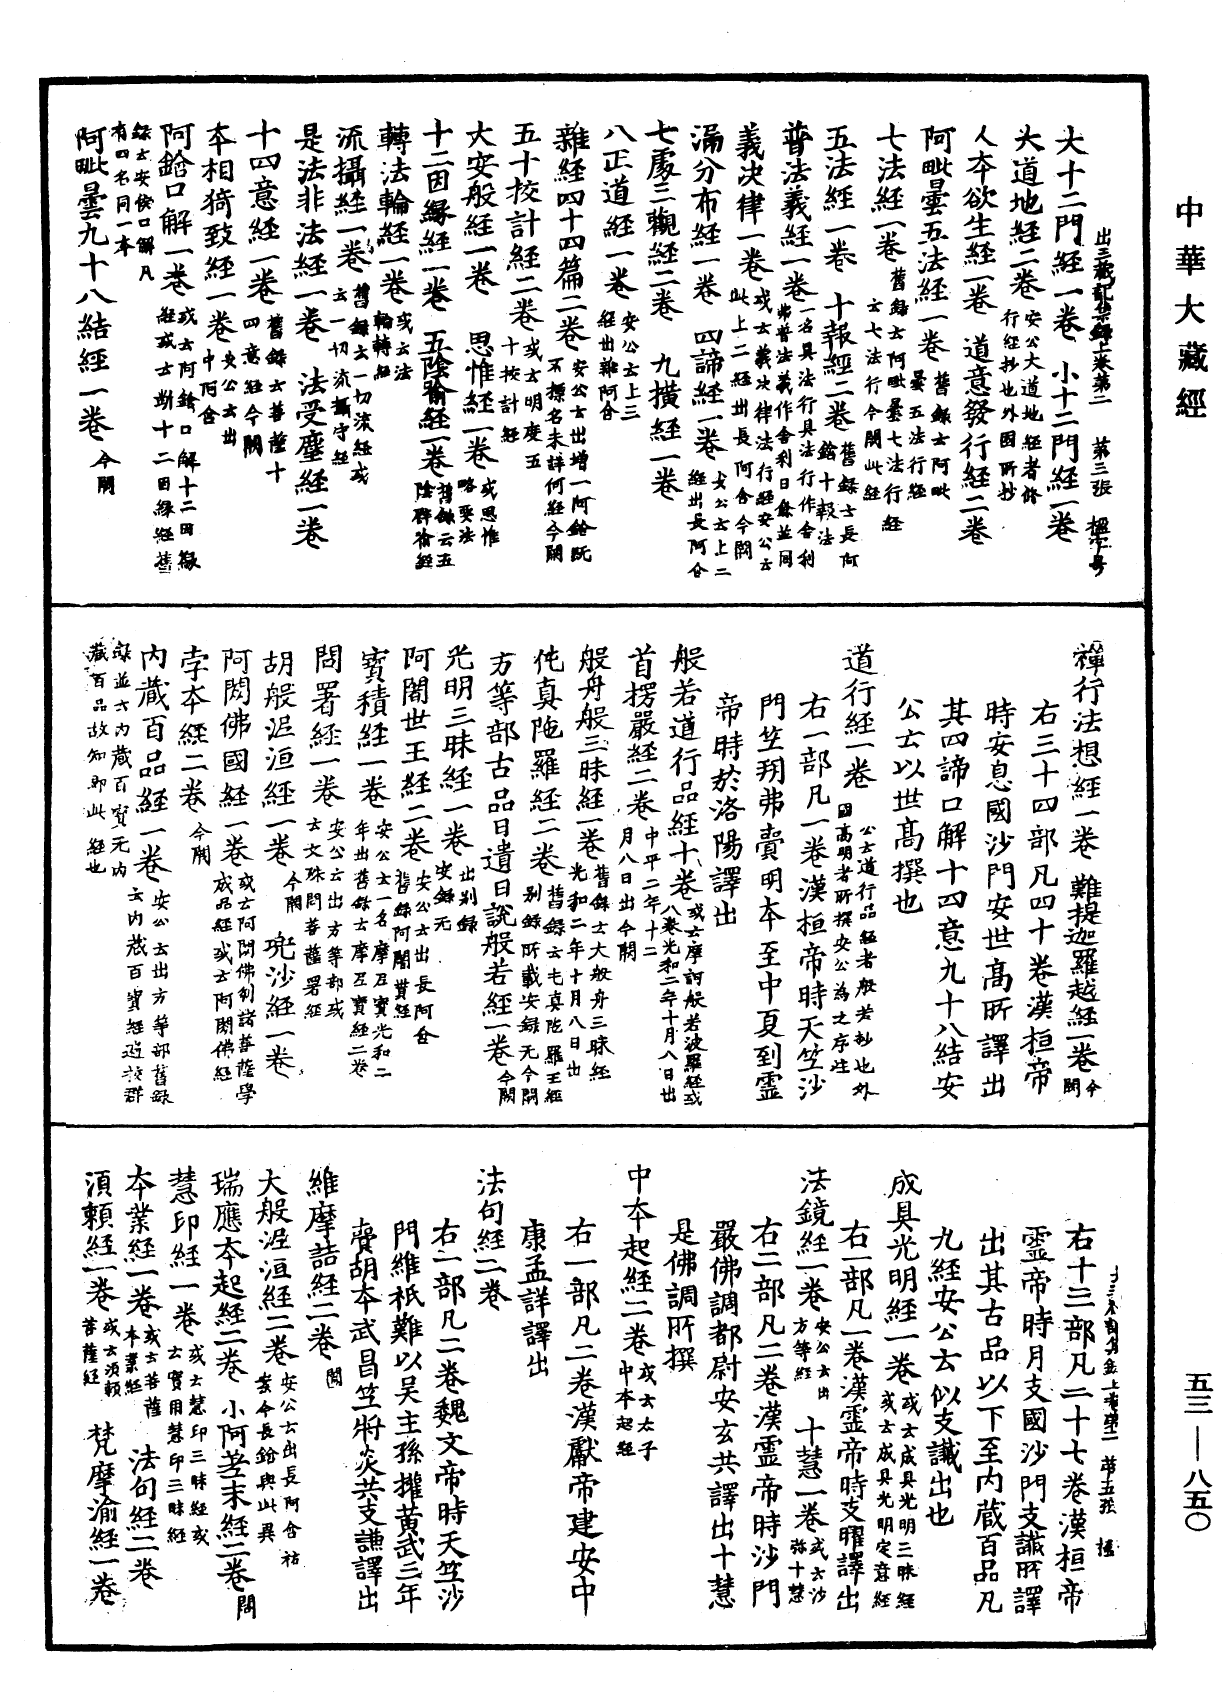 中華大藏經
大十二門經一卷　小十二門經一卷
大道地經二卷安公云大道地經者修行經抄也外國所抄
人本欲生經一卷　道意發行經二卷
阿毗曇五法經一卷舊錄云阿毗曇五法行經
七法經一卷舊錄云阿毗曇七法行經或云七法行今闕此經
五法經一卷　十報經二卷舊錄云長阿鋡十報法
普法義經一卷一名具法行具法行作舍利弗普法義作舍利日餘並同
義決律一卷或云義決律法行經安公云此上二經出長阿含今闕
漏分布經一卷　四諦經一卷安公云上二經出長阿含
七處三觀經二卷　九橫經一卷
八正道經一卷安公云上三經出雜阿含
雜經四十四篇二卷安公云出增一阿鋡既不標名未詳何經今闕
五十校計經二卷或云明度五十校計經
大安般經一卷　思惟經一卷或云思惟略要法
十二因緣經一卷　五陰喻經一卷舊錄云五陰譬喻經
轉法輪經一卷或云法輪轉經
流攝經一卷舊錄云一切流經或云一切流攝守經
是法非法經一卷　法受塵經一卷
十四意經一卷舊錄云菩薩十四意經今闕
本相猗致經一卷安公云出中阿含
阿鋡口解一卷或云阿鋡口解十二因緣經或云斷十二因緣經舊
錄云安侯口解凡有四名同一本
阿毗曇九十八結經一卷今闕
禪行法想經一卷　難提迦羅越經一卷今闕
右三十四部凡四十卷漢桓帝
時安息國沙門安世高所譯出
其四諦口解十四意九十八結安
公云以世高撰也
道行經一卷安公云道行品經者般若抄也外國高明者所撰安公為之序注
右一部凡一卷漢桓帝時天竺沙
門竺朔弗賫胡本至中夏到靈
帝時於洛陽譯出
般若道行品經十卷或云摩訶般若波羅經或八卷光和二年十月八日出
首楞嚴經二卷中平二年十二月八日出今闕
般舟般三昧經一卷舊錄云大般舟三昧經光和二年十月八日出
伅真陁羅經二卷舊錄云屯真陁羅王經別錄所載安錄无今闕
方等部古品曰遺日說般若經一卷今闕
光明三昧經一卷出別錄安錄无
阿闍世王經二卷安公云出長阿含舊錄阿闍貰經
寶積經一卷安公云一名摩尼寶光和二年出舊錄云摩尼寶經二卷
問署經一卷安公云出方等部或云文殊問菩薩署經
胡般泥洹經一卷今闕　兜沙經一卷
阿閦佛國經一卷或云阿閦佛剎諸菩薩學成品經或云阿閦佛經
孛本經二卷今闕
內藏百品經一卷安公云出方等部舊錄云內藏百寶經遍挍群
錄並云內藏百寶无內藏百品故知即此經也
右十三部凡二十七卷漢桓帝
靈帝時月支國沙門支讖所譯
出其古品以下至內藏百品凡
九經安公云似支讖出也
成具光明經一卷或云成具光明三昧經或云成具光明定意經
右一部凡一卷漢靈帝時支曜譯出
法鏡經一卷安公云出方等經　十慧一卷或云沙弥十慧
右二部凡二卷漢靈帝時沙門
嚴佛調都尉安玄共譯出十慧
是佛調所撰
中本起經二卷或云太子中本起經
右一部凡二卷漢獻帝建安中
康孟詳譯出
法句經二卷
右二部凡二卷魏文帝時天竺沙
門維祇難以吳主孫權黃武三年
賫胡本武昌竺將炎共支謙譯出
維摩詰經二卷闕
大般泥洹經二卷安公云出長阿含祐案今長鋡與此異
瑞應本起經二卷　小阿差末經二卷闕
慧印經一卷或云慧印三昧經或云寶田慧印三昧經
本業經一卷或云菩薩本業經　法句經二卷
湏賴經一卷或云湏賴菩薩經　梵摩渝經一卷
五三—八五〇